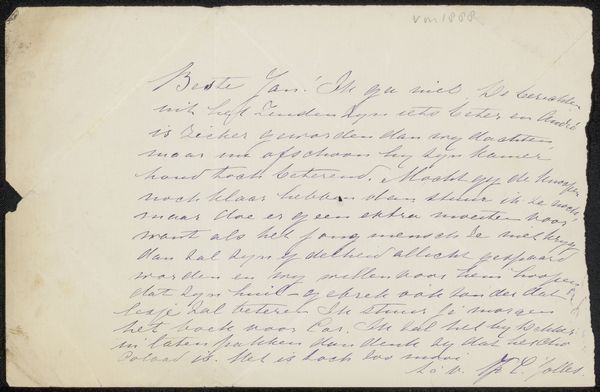 vm 1888
Beste Jan! Ik ga niet. De berichten
uit het Zuiden zyn iets beter en André
is zieker geworden dan wy dachten,
maar nu ofschoon hy zyn kamer
houd toch beterend. Mocht gy de knoopen
noch klaar hebben dan stuur ik ze noch,
maar doe er geen extra moeite voor
want als het jong mensch ze niet krygt
dan zal zyn ydelheid allicht gespaard
worden en wy willen voor hem hoopen
dat zyn huil-gebrek ook zonder dat
lesje zal beteren. Ik stuur je morgen
het boek voor Car. Ik zal het by Dekker
in laten pakken dan denkt zy dat het
chocolaad is. Het is toch zoo mooi
t. à. v. Jolles.